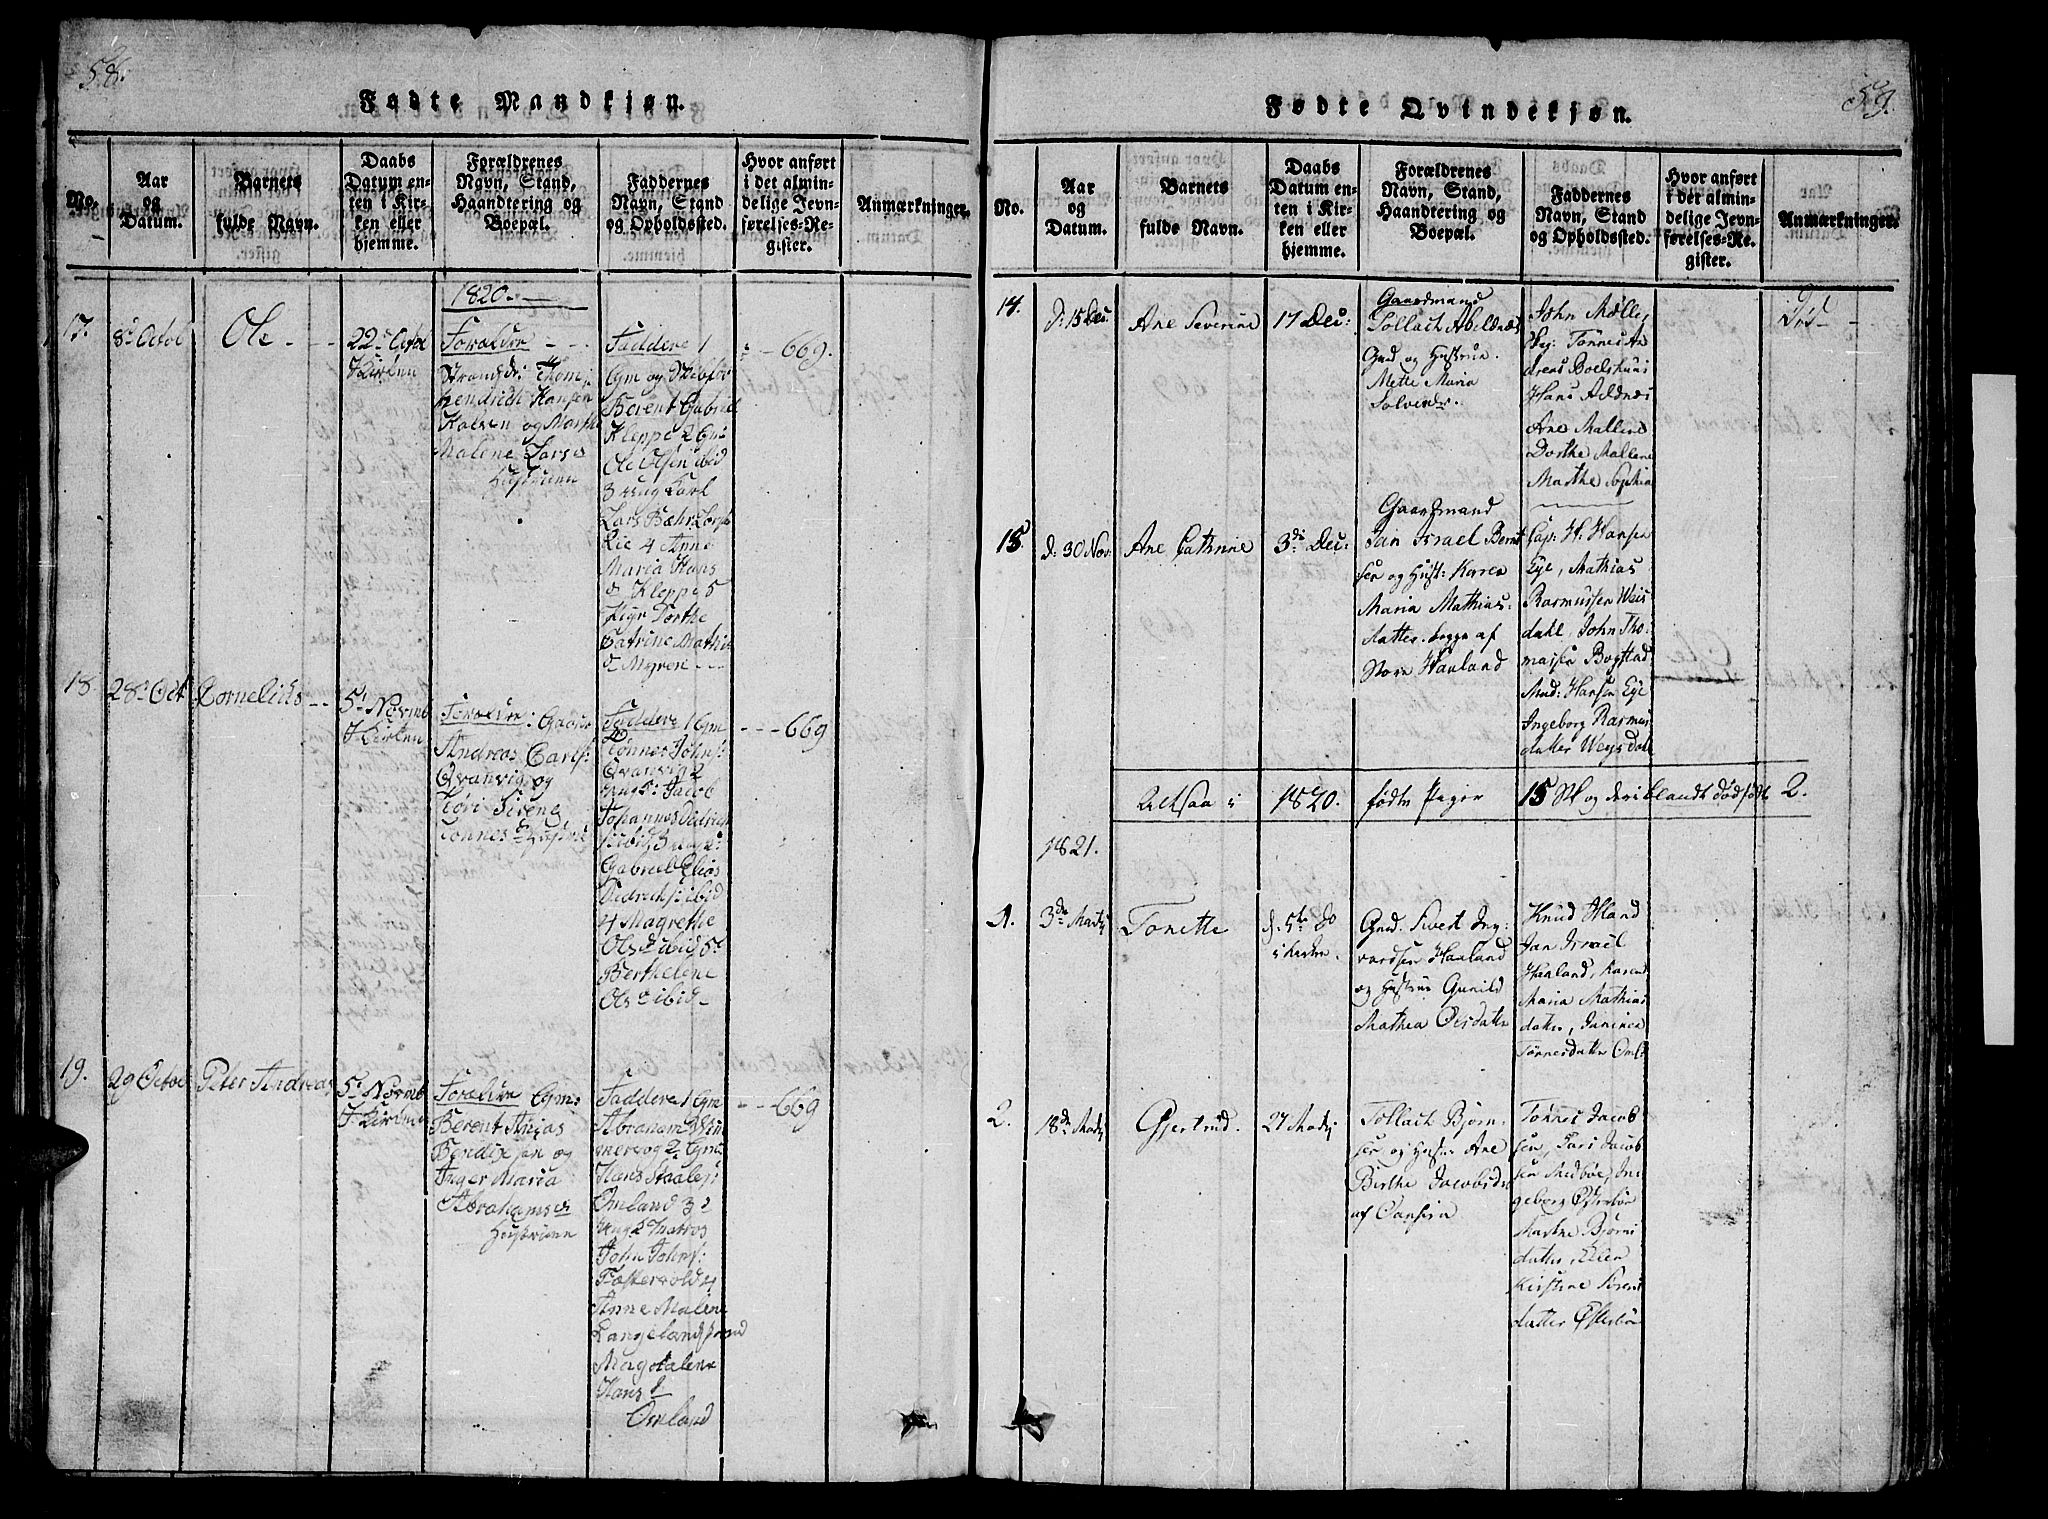 58.
Fødte Mandkjøn.
No.
Aar
og
Datum.
Barnets
fulde Navn.
Daabs
Datum en-
ten i Kir-
ken eller
hjemme.
Forældrenes
Navn, Stand,
Haandtering og
Boepæl.
Faddernes
Navn, Stand
og Opholdssted.
Hvor anført
i det almin-
delige Jevn-
førelses-Re-
gister.
Anmærkninger.
1820.
17.
8de Octob
Ole
22de Octob
I Kirken
Forældre
Strandsdr: Thom:
Hendrich Hansen
og Marthe
Malene Lars d
Hustruen
Faddere 1
Gm og
Berent Gabriel
Kleppe 2 Gm
Ole Olsen ibid
3 ung Karl
Lars Bæhr
4 Anne
Maria Hans
d Kleppe 5
Pige Dorthe
Catrine Mathis
d Myren
669.
18
28de Oct
Cornelius
5te Novmb
I Kirken
Forældre: Gaard
Andreas Carls:
Qvanvig og
Siren
Tønnes d Hustrue
Faddere 1 Gm
Tønnes Johns:
Qvanvig 2
ungk: Jacob
Johannes Didrich
s ibid 3 ungk:
Gabriel Elias
Didrichs: ibid
4 Magrethe
Ols d ibid 5
Berthelene
Ols d ibid
669
19.
29 Octob
Peter Andreas
5te Novmb
I Kirken
Forældre Gm:
Berent Anias
Bendixsen og
Inger Maria
Abrahams d
Hustruen
Faddere 1 Gm
Abraham
2 Gm:
Hans Staales:
Omland 3
ungk Matros
John Johns:
Anne Malene
Langeland
Magdalene
Hans d
Omland
669
59.
Fødte Qvindekjøn.
No.
Aar
og
Datum.
Barnets
fulde Navn.
Daabs
Datum en-
ten i Kir-
ken eller
hjemme.
Forældrenes
Navn, Stand,
Haandtering og
Boepæl.
Faddernes
Navn, Stand
og Opholdssted.
Hvor anført
i det almin-
delige Jevn-
førelses-Re-
gister.
Anmærkninger.
14.
d: 15 Dec.
Ane Severine
17 Dec:
Gaardmand
Tollach Abelnæs
Gmd og Hustrue
Mette Maria
John Mølle,
Tønnes An
dreas Boelshuus
Hans
Ane Mallene
Dorthe Mallene
Marthe Sophia
Død
15.
d: 30 Nov:
Ane Cathrine
3de Dec:
Gaardmand
Jan Israel Bernt
sen og Hust: Karen
Maria Mathias
datter begge af
Store Haaland
Cap: H: Hansen
Eye, Mathias
Rasmussen Weis
dahl, John Tho
massen Bogstad
Mad: Hansen Eye
Ingeborg Rasmus
datter Weysdal
Altsaa i
1820.
fødte Piger
15 St og deriblandt dødfødt
2.
1821.
1.
3de Martj
Tonette
d. 5te do
i Kirken.
Gmd. Sivert Ing
vardsen Haaland
og Hustrue Gunild
Mathea Olsdatter
Knud Haaland
Jan Israel
Haaland, Karen
Maria Mathias
datter, Janinea
Tønnesdatter Oml:
2.
18de Martj
Gjertrud.
27 Martj
Tollach Bjørn
sen og Hustr: Ane
Birthe Jacobsdr
af
Tønnes Jacob
sen, Lars Jacob
sen Medbøe, In
geborg Østerbøe
Marthe Bjørns
datter, Ellen
Kirstine Sørens
datter Østerbøe